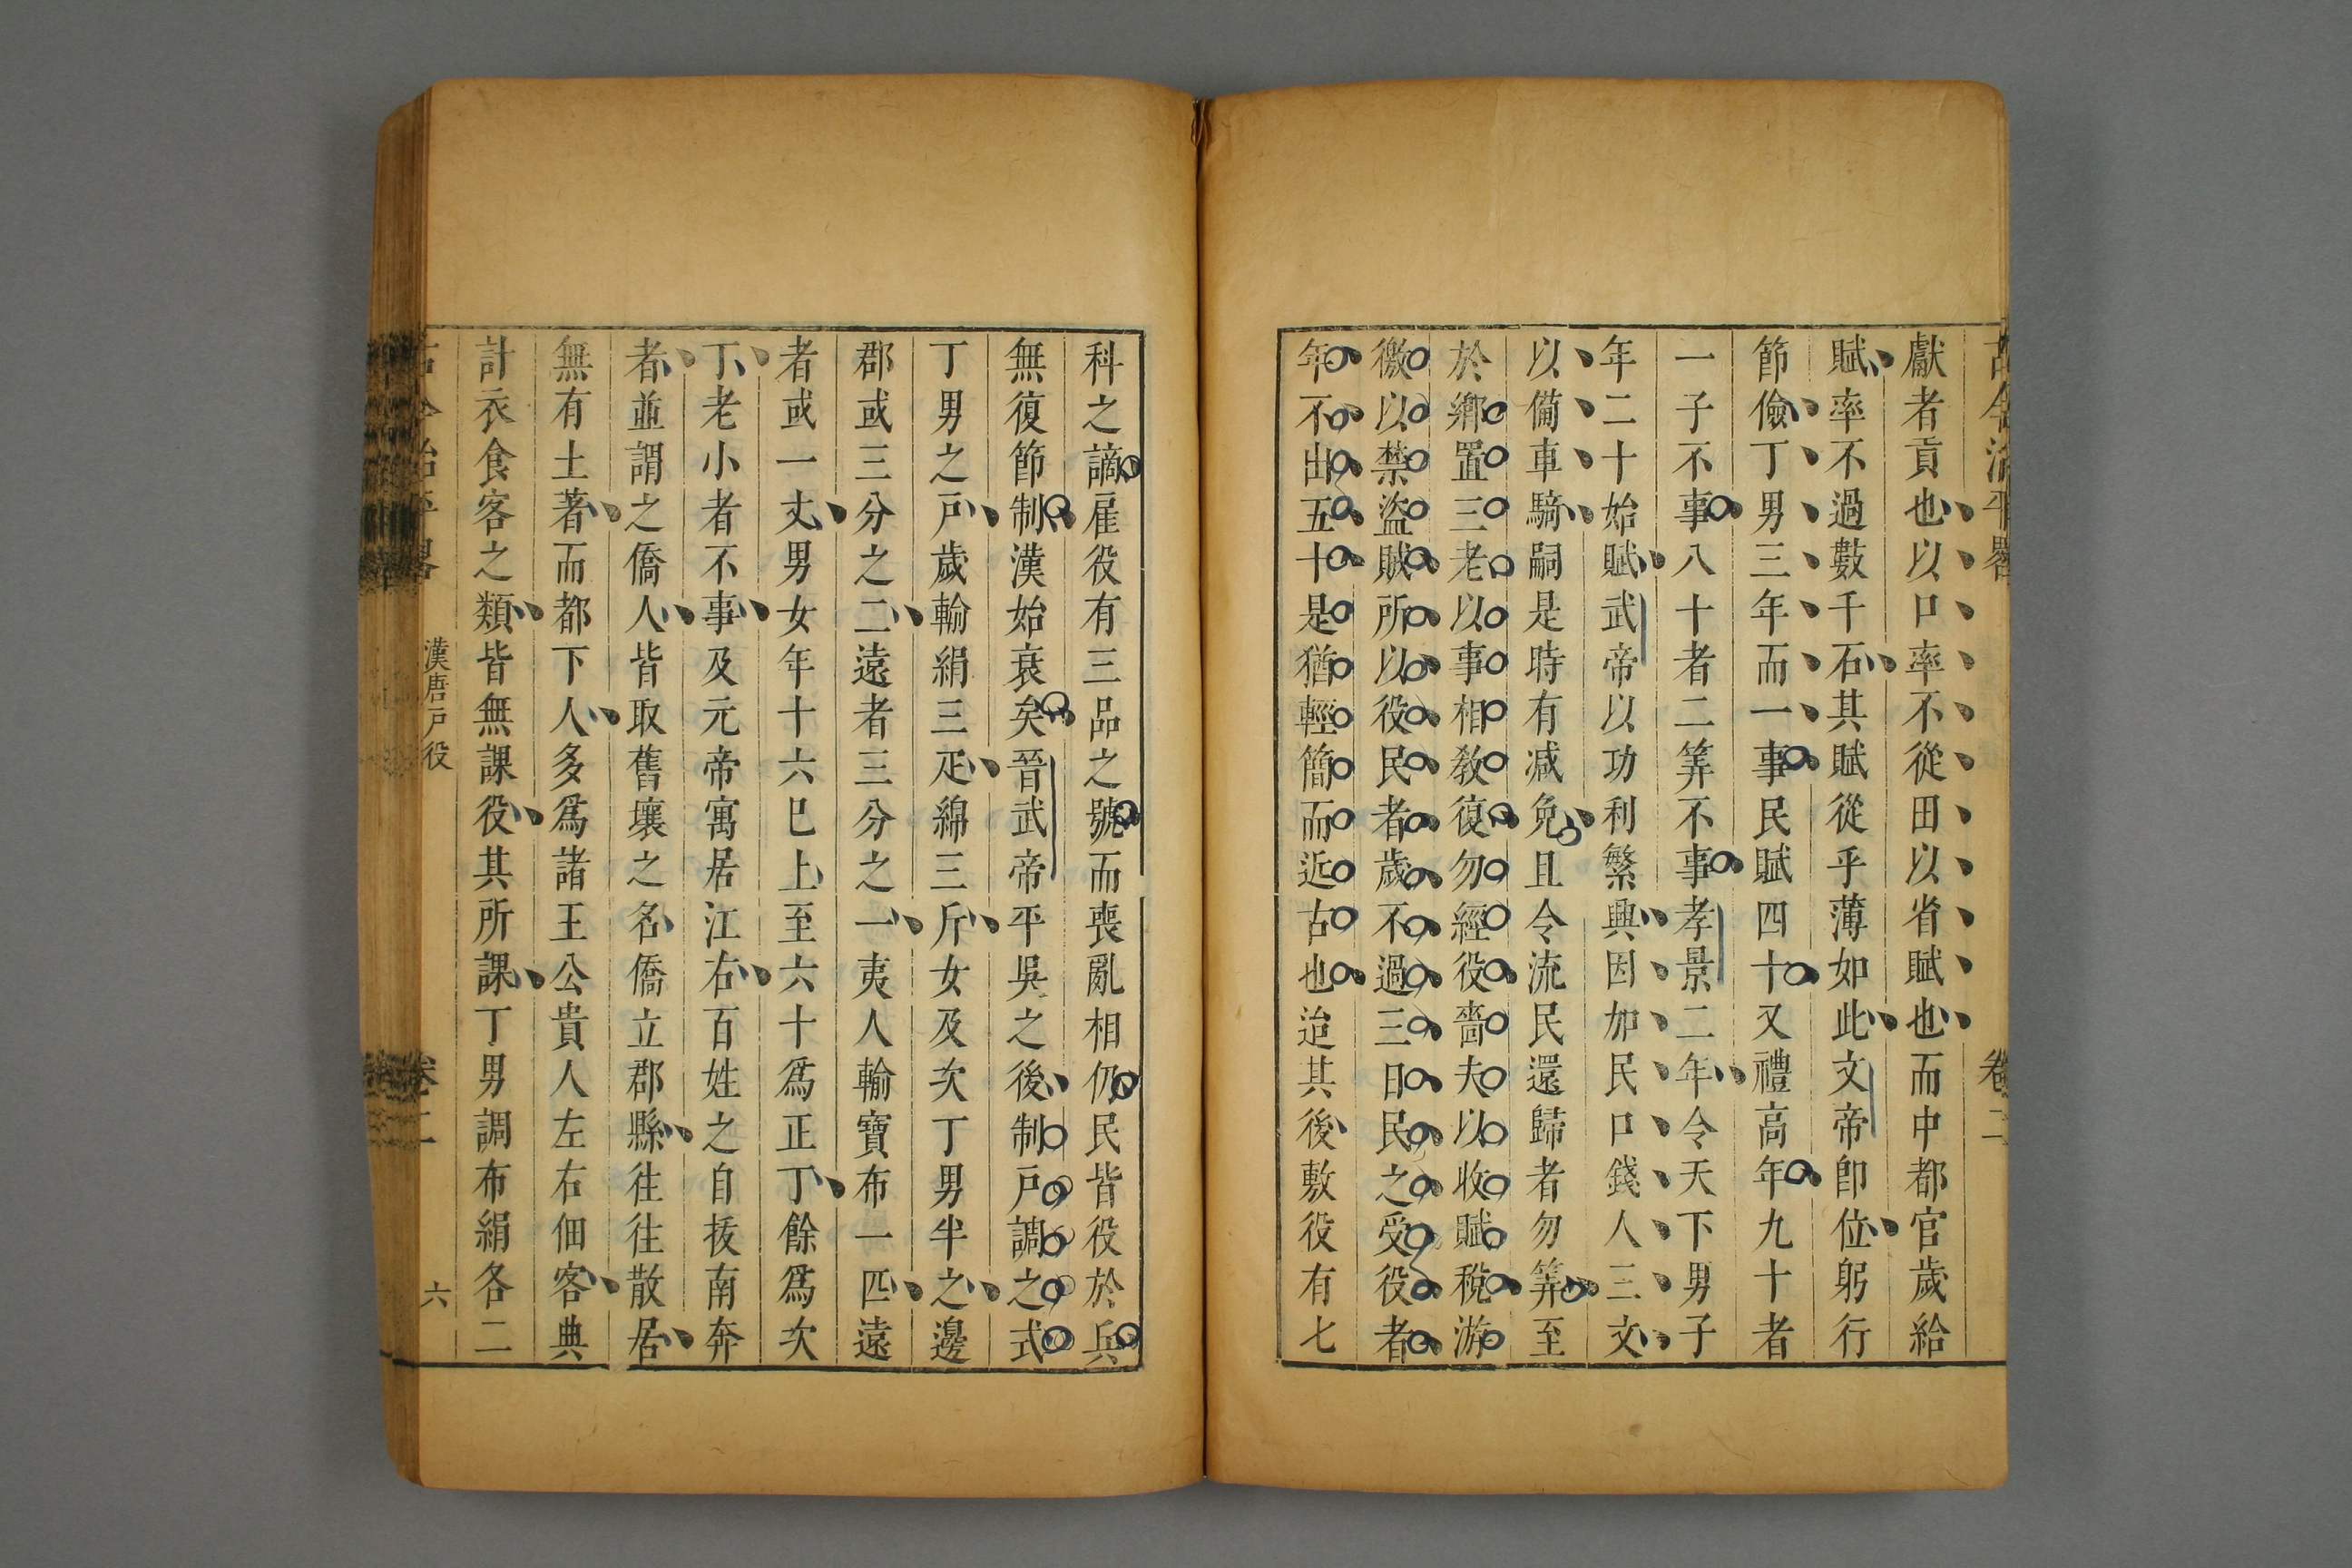 古今治平畧
卷二
獻者貢也以口率不從田以省賦也而中都官歲給
賦率不過數千石其賦從乎薄如此文帝卽位躬行
節儉丁男三年而一事民賦四十又禮高年九十者
一子不事八十者二筭不事孝景二年令天下男子
年二十始賦武帝以功利繁興因加民口錢人三文
以備車騎嗣是時有減免且令流民還歸者勿筭至
於鄉置三老以事相敎復勿經役嗇夫以收賦稅游
徼以禁盜賊所以役民者歲不過三日民之受役者
年不出五十是猶輕簡而近古也迨其後敷役有七
科之謫雇役有三品之號而喪亂相仍民皆役於兵
無復節制漢始衰矣晉武帝平吳之後制戶調之式
丁男之戶歲輸絹三疋綿三斤女及次丁男半之邊
郡或三分之二遠者三分之一夷人輸寶布一匹遠
者或一丈男女年十六巳上至六十爲正丁餘爲次
丁老小者不事及元帝寓居江右百姓之自拔南奔
者並謂之僑人皆取舊壤之名僑立郡縣往往散居
無有土著而都下人多爲諸王公貴人左右佃客典
計衣食客之類皆無課役其所課丁男調布絹各二
古今治平畧
漢唐戶役
卷二
六